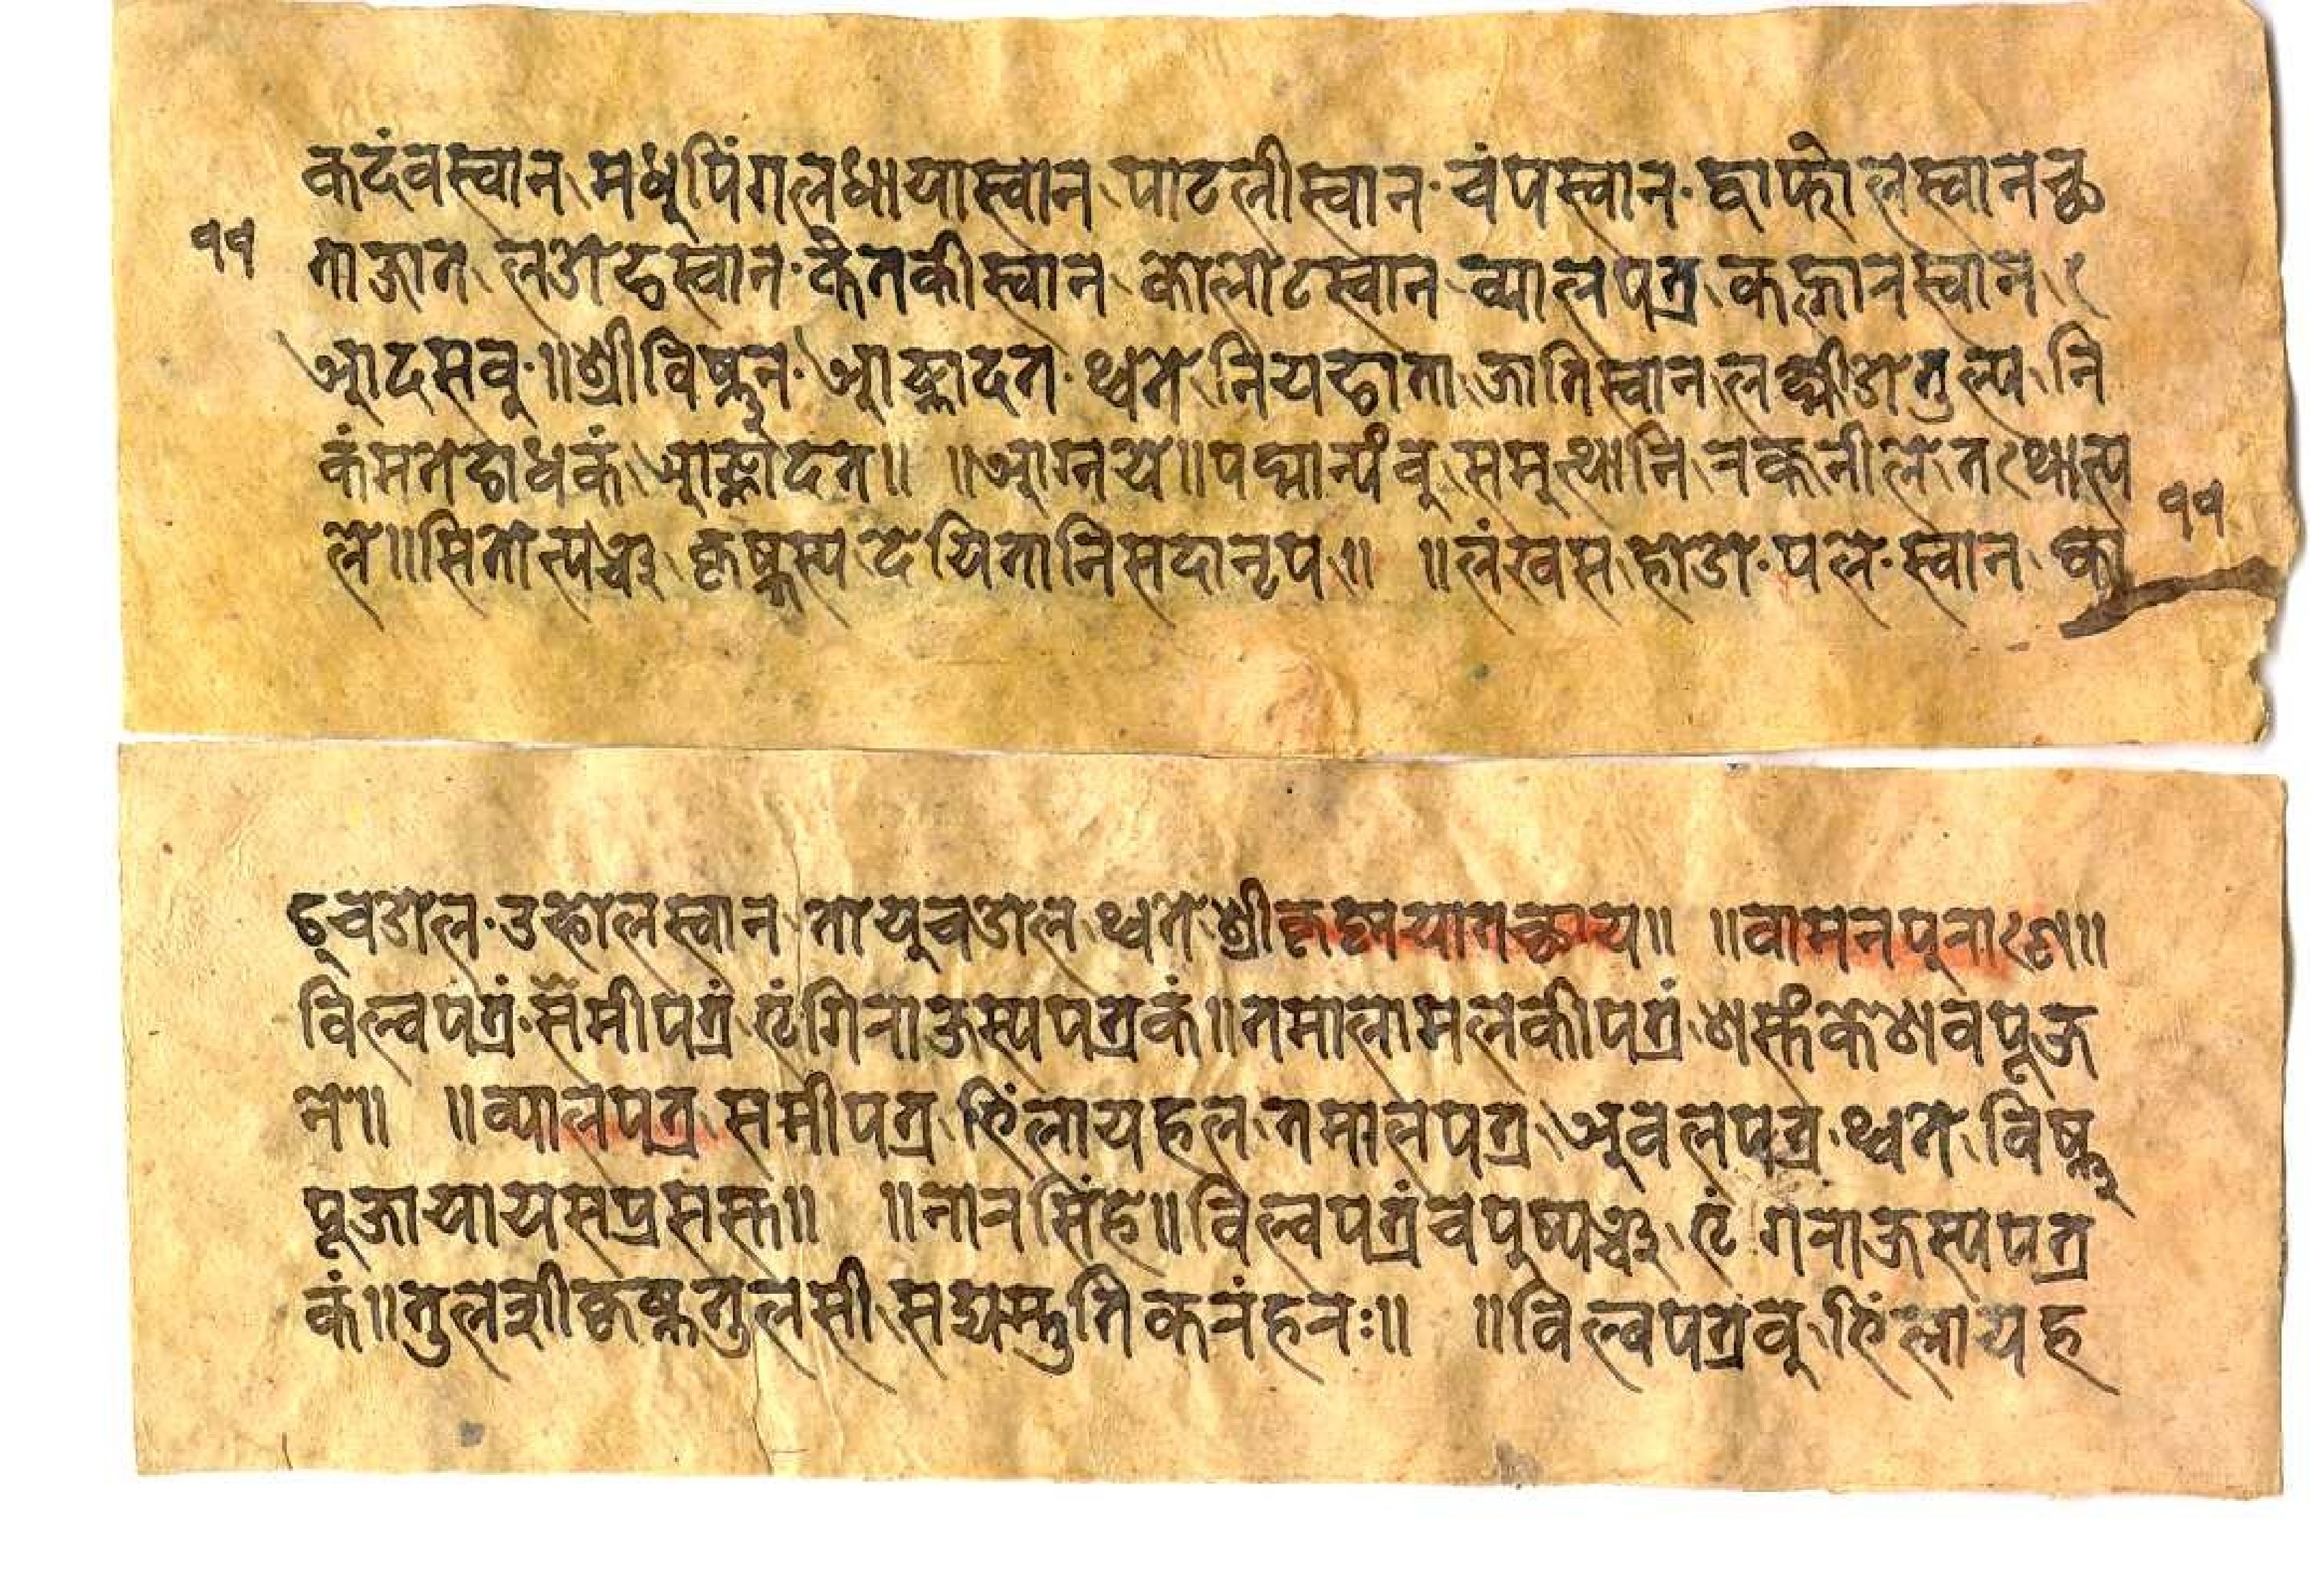 कदंवस्वान मधुपिंगलधायास्वान पाटलीस्वान चंपस्वान द्वाफोलस्वान छ
११ ताजात लओढस्वान केतकीस्वान कोलोटस्वान व्यालपत्र कह्नानस्वान
आदसवु ॥ श्रीविष्णुन आह्लादन थ्वते नियछाता जातिस्वान लक्ष्मीओतुल्य नि
कंमतेछाधकं आह्लादन ॥ ॥ आग्नये ॥ पद्मान्यंवु समुत्थानि रक्तनीले तथोत्प
ले ॥ सितोत्पञ्च कृष्णस्य देयितानि सदानृप ॥ ॥ लंखस होओ पले स्वान का ११
हुचओल उफोलस्वान तोयुचओल थ्वते श्रीकृष्णयातछाय ॥ ॥ वामनपुराणे ॥
विल्वपत्रं समीपत्रं भृंगिराजस्यपत्रकं ॥ तमालामलकीपत्रं शस्तंकेशवपूज
ने ॥ ॥ व्यालपत्र समीपत्र भिंलायहल तमालपत्र अवलपत्र थ्वते विष्णु
पूजायायसप्रसस्त ॥ ॥ नारसिंहे ॥ विल्वपत्रंचपुष्पञ्च भृंगराजस्यपत्र
कं ॥ तुलशीकृष्णतुलसी सद्यस्तुतिकरंहरेः ॥ ॥ विल्वपत्रवु भिंलायह